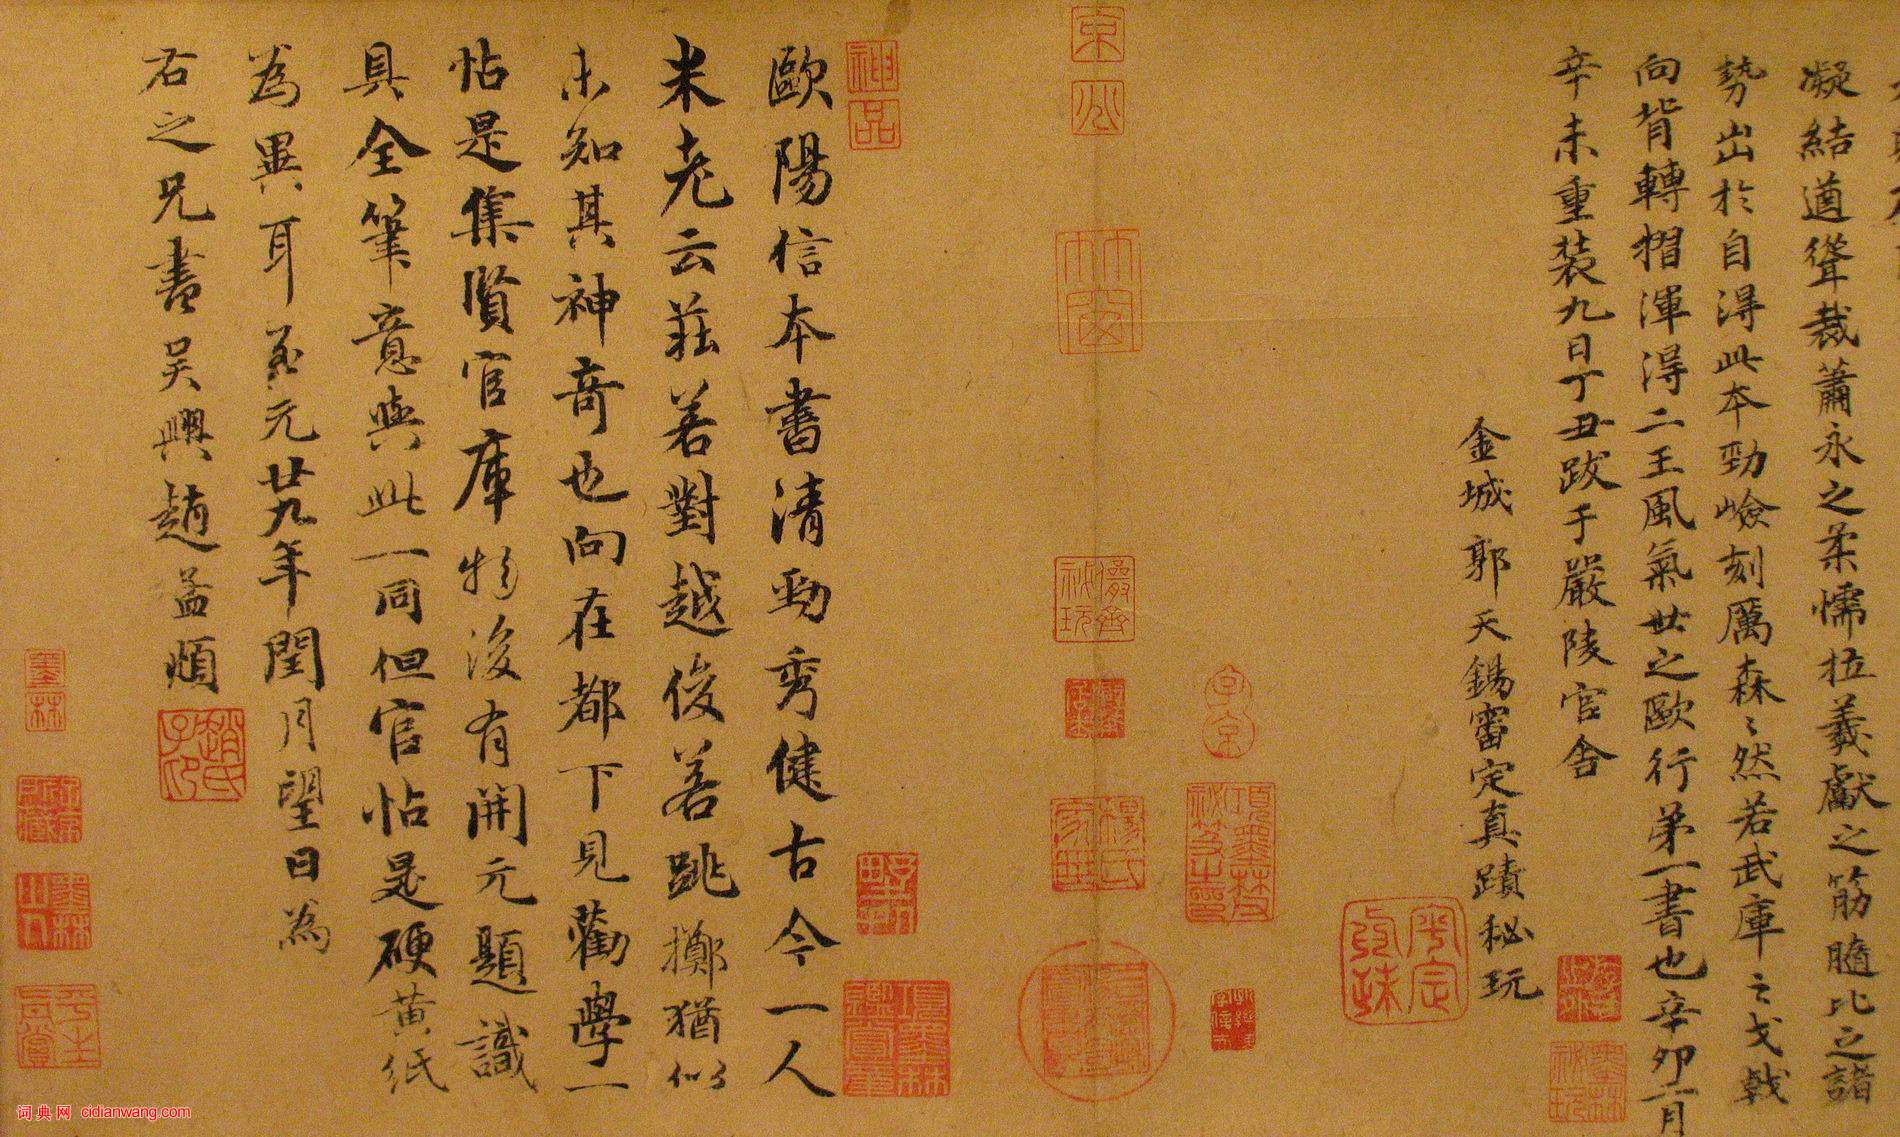 凝結遒聳裁蕭永之柔懦拉羲獻之筋髓比之諸
勢出於自得此本勁嶮刻厲森〻然若武庫之戈戟
向背轉摺渾得二王風氣世之歐行第一書也辛卯二月
辛未重裝九日丁丑跋于嚴陵官舍
金城郭天錫審定真蹟秘玩
歐陽信本書清勁秀健古今一人
米老云莊若對越俊若跳擲猶似
未知其神奇也向在都下見勸學一
帖是集賢官庫物後有開元題識
具全筆意與此一同但官帖是硬黃紙
為異耳至元廿九年閏月望日為
右之兄書吳興趙孟頫
神品
趙氏子印
墨林
平生真賞
墨林秘玩
項墨林父秘笈之印
子京
词典网 cidianwang.com